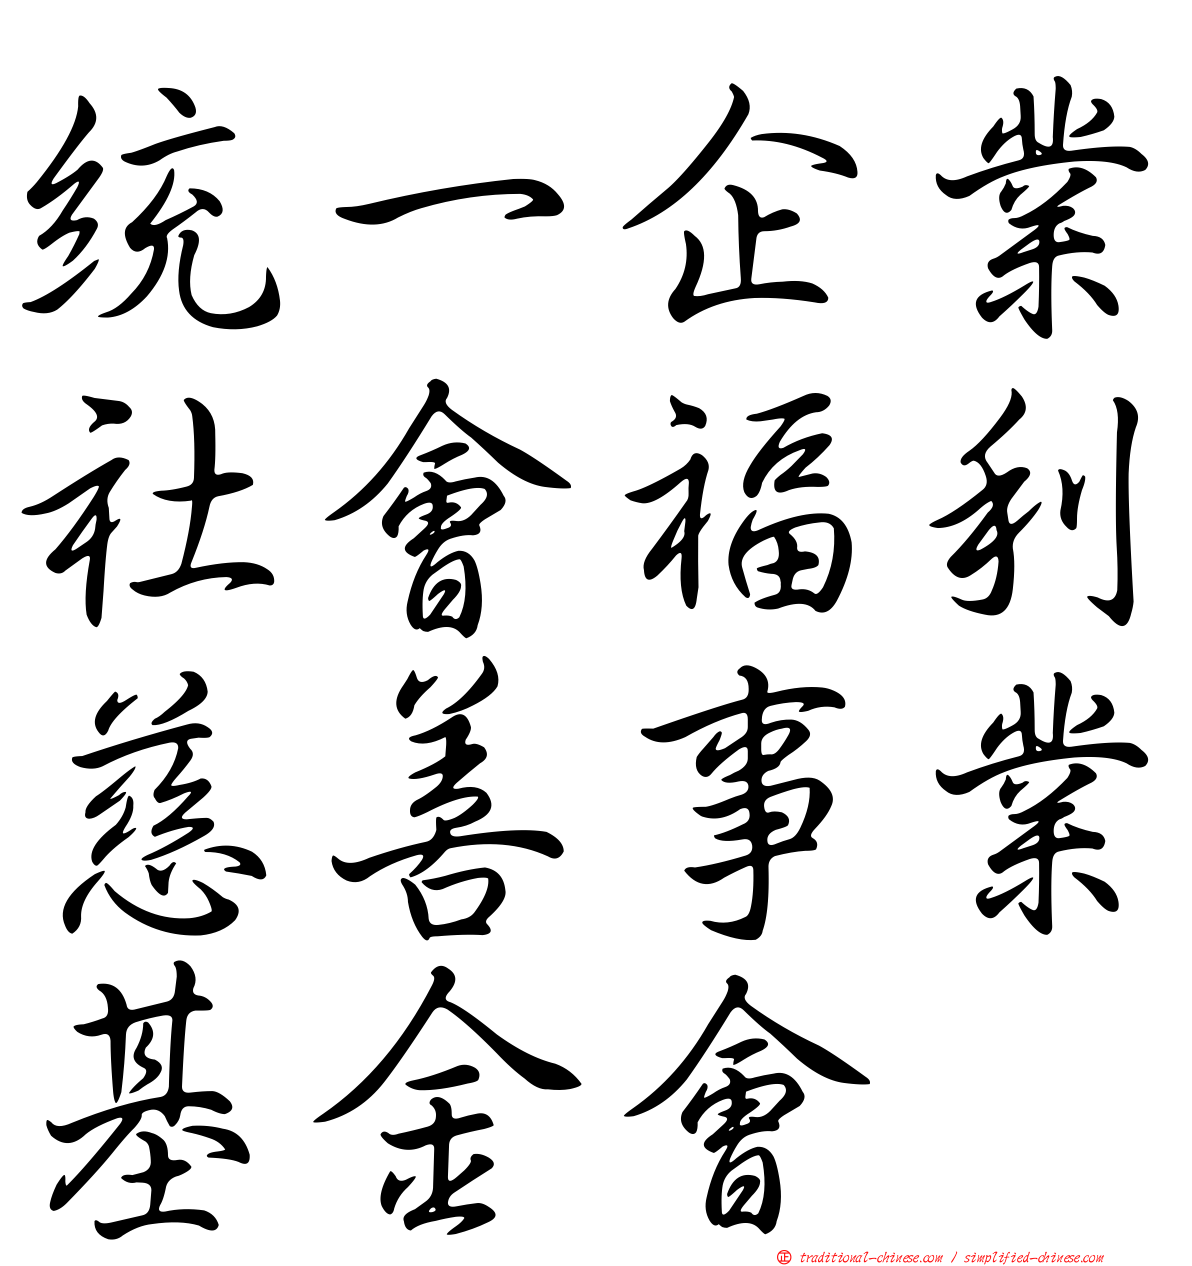 統一企業
社會福利
慈善事業
基金會
正 traditional-chinese.com / simplified-chinese.com